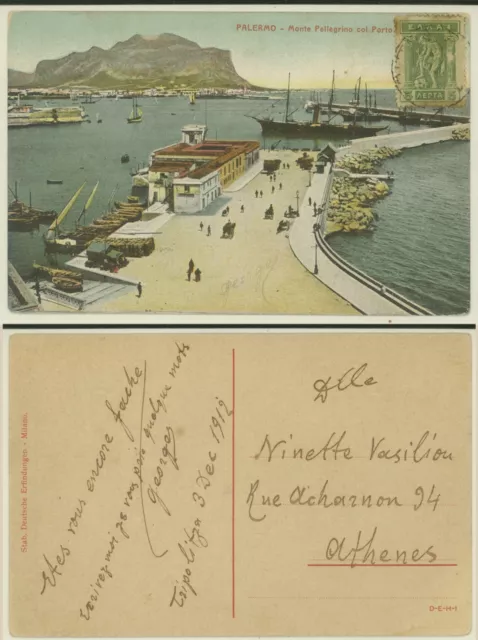 PALERMO - Monte Pellegrino col Porto
ΕΛΛΑΣ
ΛΕΠΤΑ
Stab. Deutsche Erfindungen. - Milano.
Etes vous encore fachée
Ecrivez moi je vous prie quelque mots
Georges
Tripolitza 3 Dec 1912
Dlle
Ninette Vasiliou
Rue Acharnon 94
Athenes
D-E-H-I